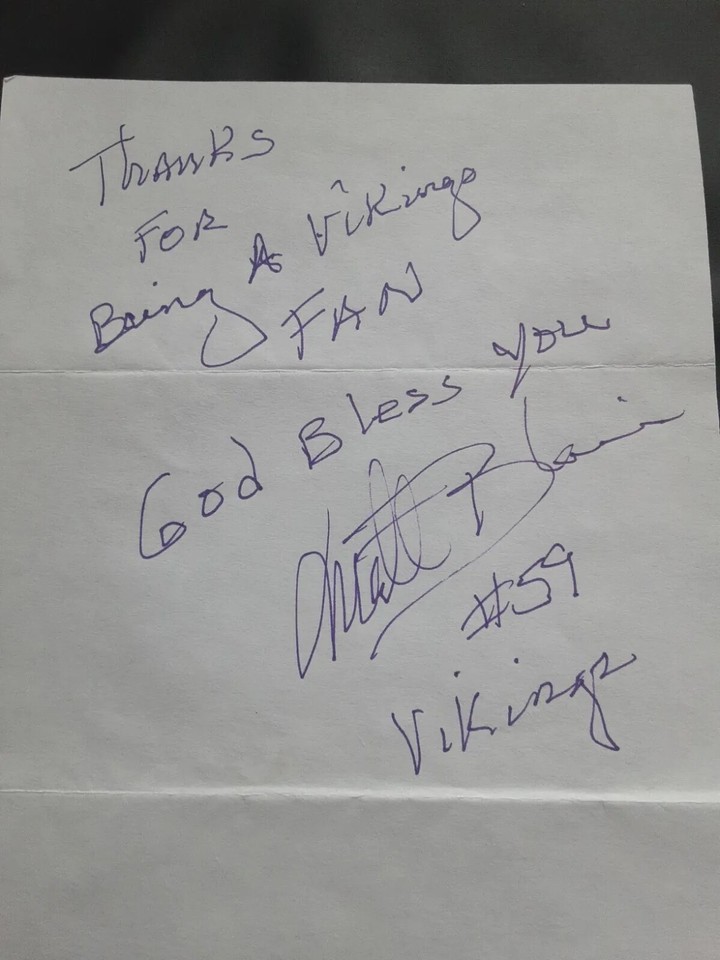 Thanks
For
Being A Vikings
FAN
God Bless you
Matt Blair
#59
Vikings